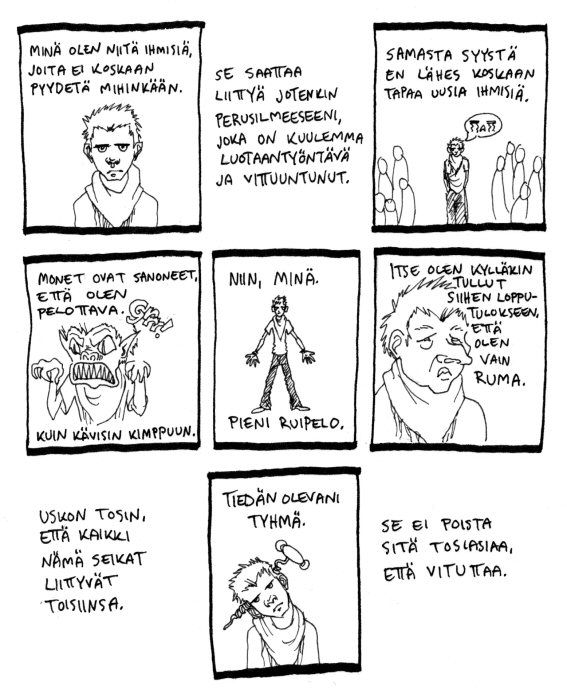 MINÄ OLEN NIITÄ IHMISIÄ,
JOITA EI KOSKAAN
PYYDETÄ MIHINKÄÄN.
SE SAATTAA
LIITTYÄ JOTENKIN
PERUSILMEESEENI,
JOKA ON KUULEMMA
LUOTAANTYÖNTÄVÄ
JA VITTUUNTUNUT.
SAMASTA SYYSTÄ
EN LÄHES KOSKAAN
TAPAA UUSIA IHMISIÄ.
MONET OVAT SANONEET,
ETTÄ OLEN
PELOTTAVA.
KUIN KÄVISIN KIMPPUUN.
NIIN, MINÄ.
PIENI RUIPELO.
ITSE OLEN KYLLÄKIN
TULLUT
SIIHEN LOPPU-
TULOKSEEN,
ETTÄ
OLEN
VAIN
RUMA.
USKON TOSIN,
ETTÄ KAIKKI
NÄMÄ SEIKAT
LIITTYVÄT
TOISIINSA.
TIEDÄN OLEVANI
TYHMÄ.
SE EI POISTA
SITÄ TOSIASIAA,
ETTÄ VITUTTAA.